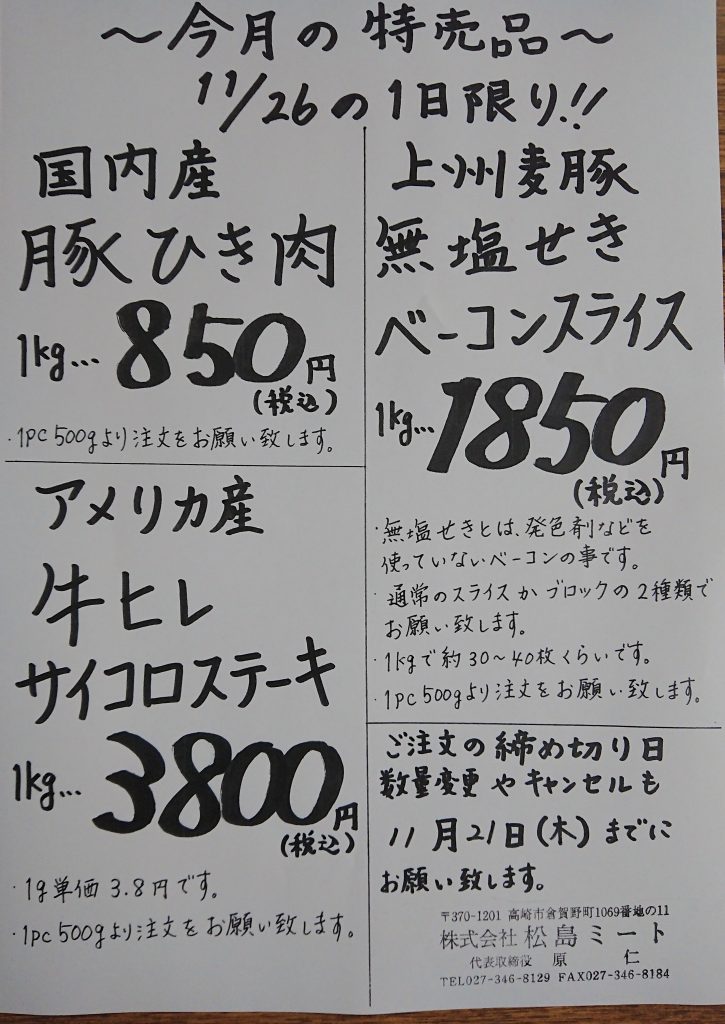 ～今月の特売品～
11/26の1日限り!!
国内産
豚ひき肉
1kg… 850円
(税込)
・1pc 500gより注文をお願い致します。
アメリカ産
牛ヒレ
サイコロステーキ
1kg… 3800円
(税込)
・1g単価 3.8円です。
・1pc 500gより注文をお願い致します。
上州麦豚
無塩せき
ベーコンスライス
1kg… 1850円
(税込)
・無塩せきとは、発色剤などを
使っていないベーコンの事です。
・通常のスライスかブロックの2種類で
お願い致します。
・1kgで約30～40枚くらいです。
・1pc 500gより注文をお願い致します。
ご注文の締め切り日
数量変更やキャンセルも
11月21日(木)までに
お願い致します。
〒370-1201 高崎市倉賀野町1069番地の11
株式会社 松島ミート
代表取締役 原 仁
TEL027-346-8129 FAX027-346-8184